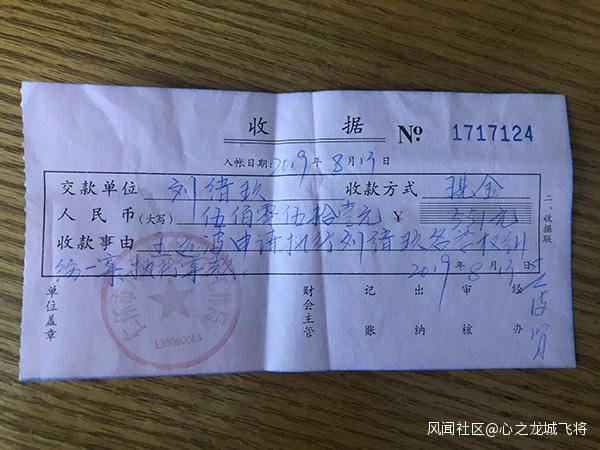 收 据 № 1717124
入帐日期:2019年8月13日
交款单位 刘绪玖 收款方式 现金
人民币(大写) 伍佰零伍拾壹元 ¥ 551元
收款事由 王 申请执行刘绪玖名誉权纠
纷一案执行案款。 2019年8月13日
二、收据联
单位盖章 财会主管 记账 出纳 审核 经办
130000013
风闻社区@心之龙城飞将